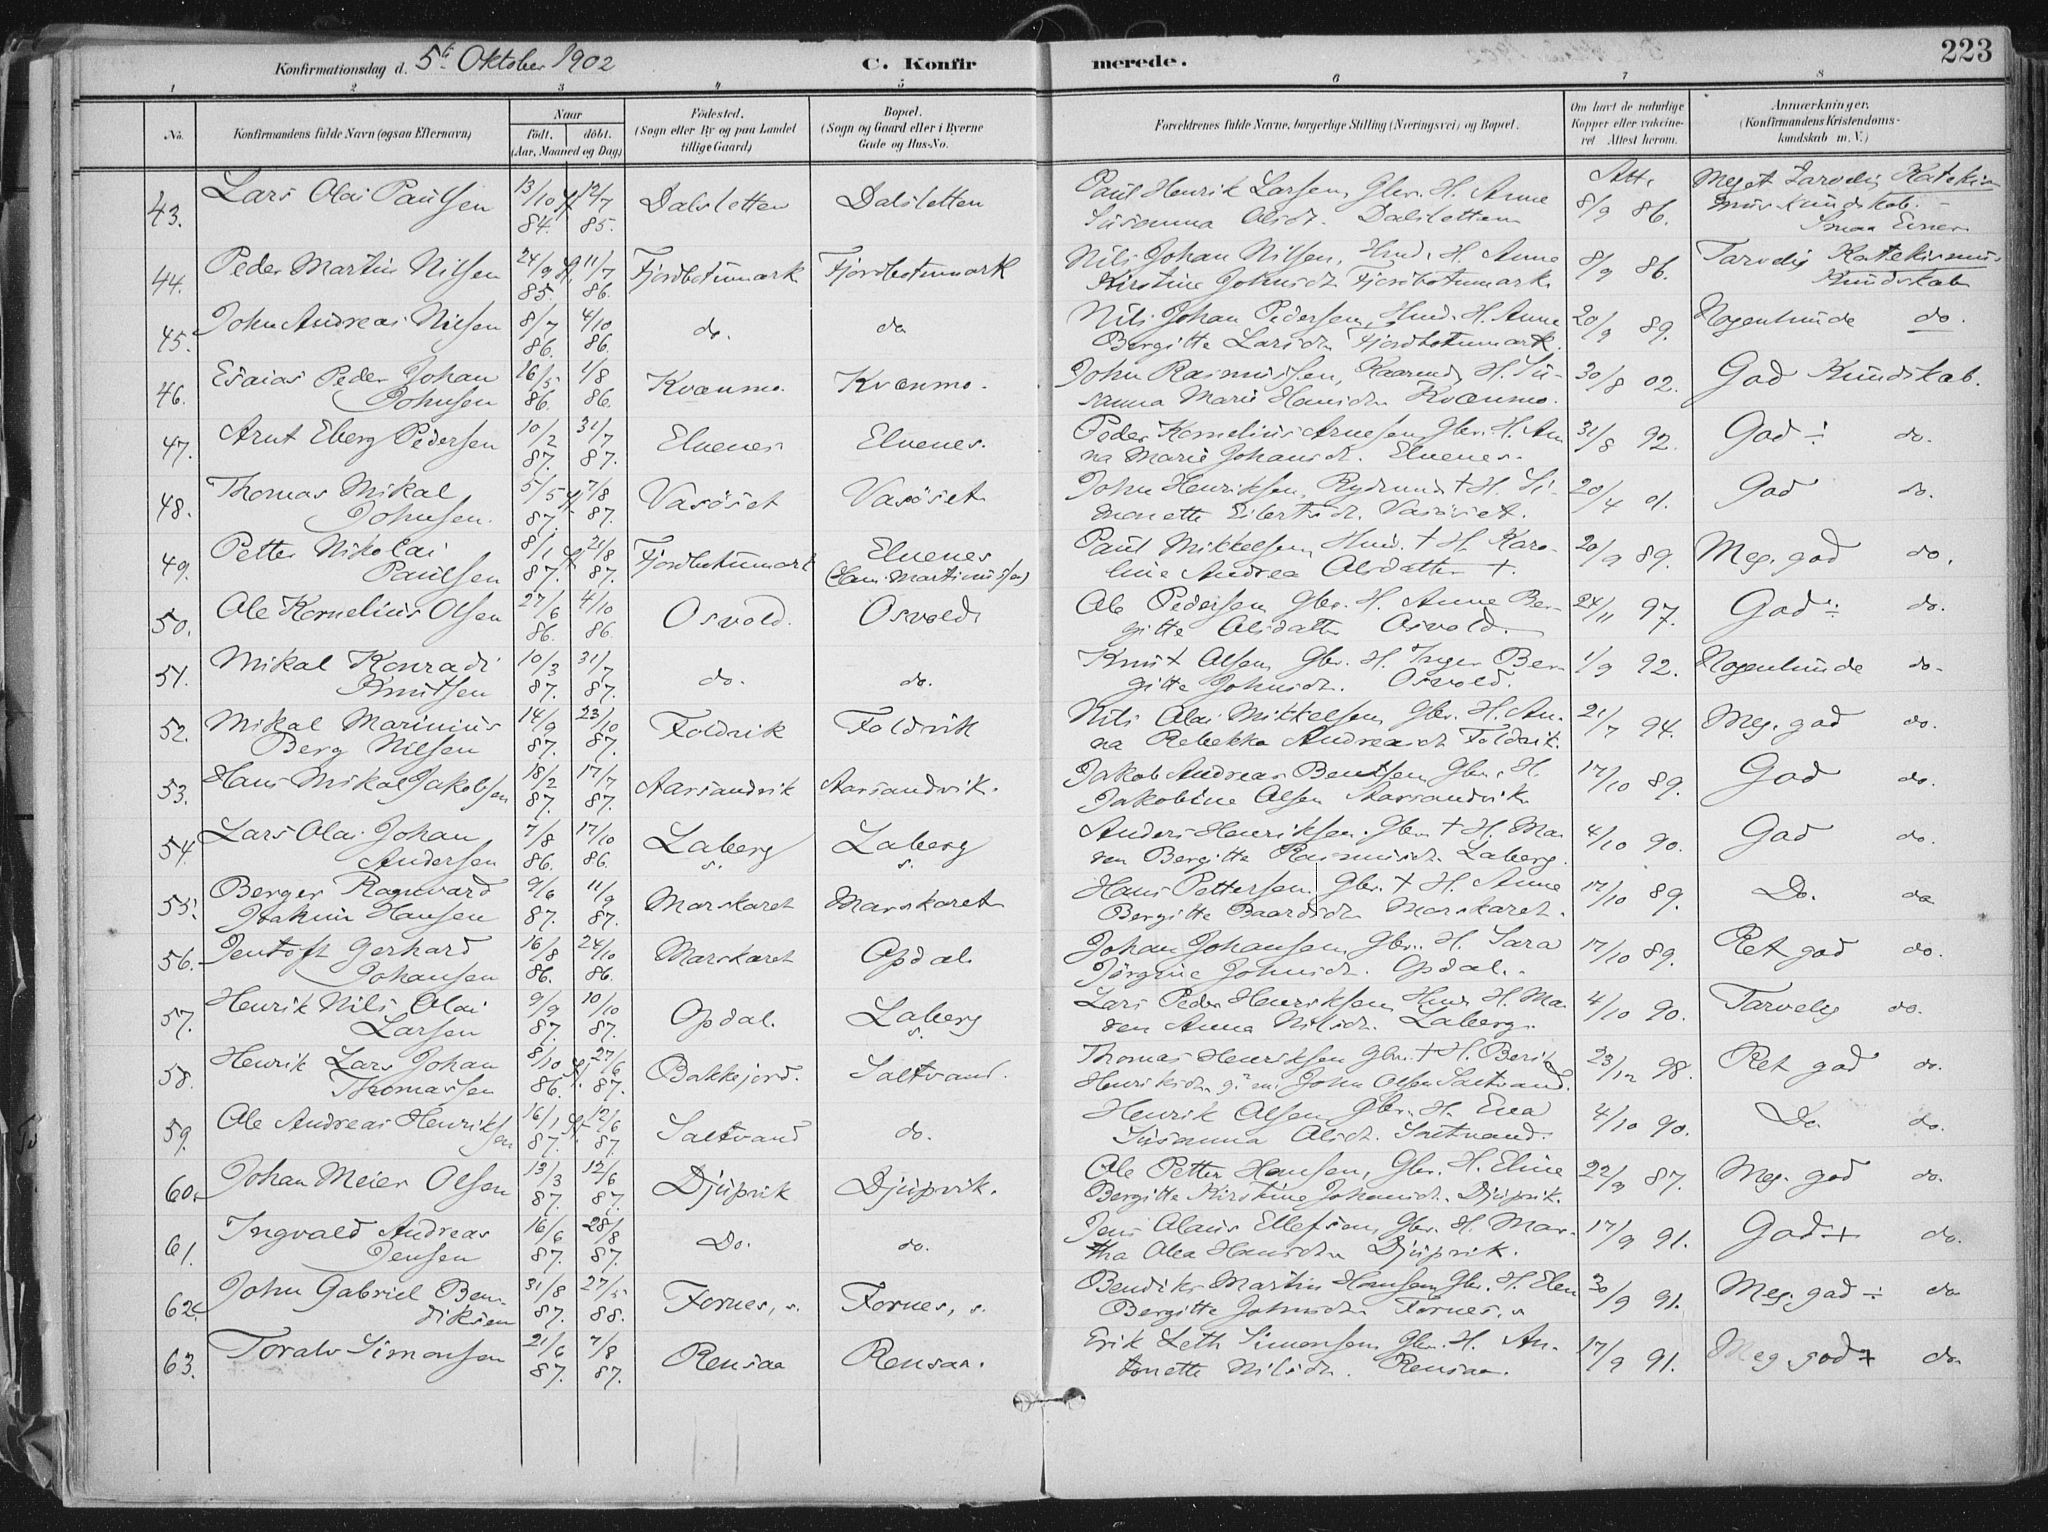 Konfirmationsdag d. 5te Oktober 1902 C. Konfirmerede. 223
1 2 3 4 5 6 7 8
No. Konfirmandens fulde Navn (ogsaa Efternavn) Naar födt. döbt. (Aar, Maaned og Dag) Födested. (Sogn eller By og paa Landet tillige Gaard) Bopæl. (Sogn og Gaard eller i Byerne Gade og Hus-No. Forældrenes fulde Navne, borgerlige Stilling (Næringsvei) og Bopæl. Om havt de naturlige Kopper eller vakcineret Attest herom. Anmærkninger. (Konfirmandens Kristendomskundskab m. V.)
43. Lars Olai Paulsen 13/10 84. 12/7 85. Dalsletten Dalsletten Paul Henrik Larsen, Gbr. H. Anne Susanna Olsdt. Dalsletten Att. 8/9 86. Meget Tarvelig Katekismuskundskab. Smaa Evner
44. Peder Martin Nilsen 24/9 85. 11/7 86. Fjordbotnmark Fjordbotnmark Nils Johan Nilsen, Hmd. H. Anne Kirstine Johnsdt. Fjordbotnmark. 8/9 86. Tarvelig Katekismus Kundskab
45. John Andreas Nilsen 8/7 86. 4/10 86. do. do Nils Johan Pedersen, Hmd. H. Anne Bergitte Larsdt. Fjordbotnmark. 20/9 89. Nogenlunde do.
46. Esaias Peder Johan Johnsen 26/5 86. 1/8 86. Kvænmo. Kvænmo. John Rasmussen, Kaarmd. H. Susanna Marie Hansdt. Kvænmo. 30/8 02. God Kundskab.
47. Arnt Eberg Pedersen 10/2 87. 31/7 87. Elvenes Elvenes. Peder Kornelius Arnesen, Gbr. H. Anna Marie Johansdt. Elvenes. 31/8 92. God ÷ do.
48. Thomas Mikal Johnsen. 5/5 87. 7/8 87. Vasöset Vasöset John Henriksen, Rydmand + H. Simonette Eilertsdt. Vasöset. 20/4 01. God do.
49. Petter Nikolai Paulsen 8/1 87. 21/8 87. Fjordbotnmark Elvenes (Sam. Martinussen) Paul Mikkelsen, Hmd. + H. Karoline Andrea Olsdatter +. 20/9 89. Meg. god do.
50. Ole Kornelius Olsen 27/6 86. 4/10 86. Osvold. Osvold. Ole Pedersen Gbr. H. Anne Bergitte Olsdatter Osvold. 24/11 97. God ÷ do.
51. Mikal Konradi Knutsen 10/3 87. 31/7 87. do. do. Knut Olsen, Gbr. H. Inger Bergitte Johnsdt. Osvold. 1/9 92. Nogenlunde do.
52. Mikal Marinius Berg Nilsen 14/9 87. 23/10 87. Foldvik Foldvik Nils Olai Mikkelsen, Gbr. H. Anna Rebekka Andreasdt. Foldvik. 21/7 94. Meg. god do.
53. Hans Mikal Jakobsen 18/2 87. 17/7 87. Aarsandvik Aarsandvik. Jakob Andreas Bentsen, Gbr. H. Jakobine Olsen Aarsandvik 17/10 89. God do.
54. Lars Olai Johan Andersen 7/8 86. 17/10 86. Laberg s. Laberg s. Anders Henriksen. Gbr. + H. Maren Bergitte Rasmusdt. Laberg. 4/10 90. God do.
55. Berger Ragnvard Joakim Hansen 9/6 87. 11/9 87. Marskaret Marskaret Hans Pettersen. Gbr. + H. Anne Bergitte Baardsdt. Marskaret. 17/10 89. Do. do
56. Jentoft Gerhard Johansen 16/8 86. 24/10 86. Marskaret Opdal Johan Johansen, Gbr. H. Sara Jörgine Johnsdt. Opdal. 17/10 89. Ret god do.
57. Henrik Nils Olai Larsen 9/9 87. 10/10 87. Opdal. Laberg s. Lars Peder Henriksen, Hmd. H. Maren Anna Nilsdt. Laberg. 4/10 90. Tarvelig do.
58. Henrik Lars Johan Thomassen 8/10 86. 27/6 87. Bakkejord. Saltvand. Thomas Henriksen Gbr. + H. Berit Henriksdt. g. 2 m. John Olsen Saltvand. 23/12 98. Ret god do.
59. Ole Andreas Henriksen 16/1 87. 12/6 87. Saltvand do. Henrik Olsen, Gbr. H. Eva Susanna Olsdt. Saltvand. 4/10 90. Do. do.
60. Johan Meier Olsen 13/3 87. 12/6 87. Djupvik Djupvik. Ole Petter Hansen, Gbr. H. Eline Bergitte Kirstine Johansdt. Djupvik. 22/9 87. Meg. god do.
61. Ingvald Andreas Jensen 16/6 87. 28/8 87. Do. do. Jens Olaus Ellefsen, Gbr. H. Martha Olea Hansdt. Djupvik. 17/9 91. God + do.
62. John Gabriel Bendiksen 31/8 87. 27/5 88. Fornes, s. Fornes, s. Bendiks Martin Hansen, Gbr. H. Elen Bergitte Johnsdt. Fornes, s 30/9 91. Meg. god ÷ do
63. Toralv Simonsen 21/6 87. 7/8 87. Rensaa Rensaa. Erik Leth Simonsen, Gbr. H. Antonette Nilsdt. Rensaa. 17/9 91. Meg. god + do